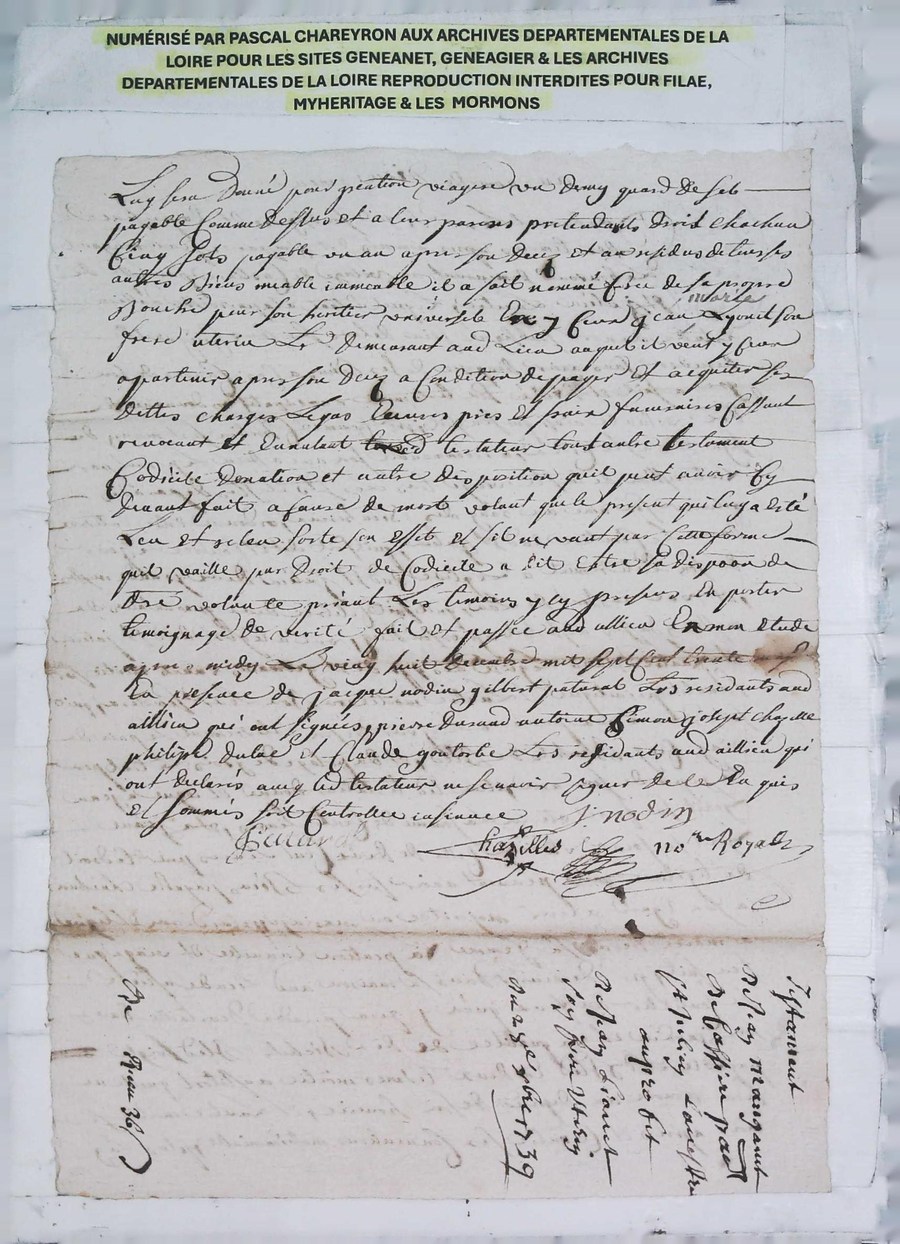 NUMÉRISÉ PAR PASCAL CHAREYRON AUX ARCHIVES DEPARTEMENTALES DE LA
LOIRE POUR LES SITES GENEANET, GENEAGIER & LES ARCHIVES
DEPARTEMENTALES DE LA LOIRE REPRODUCTION INTERDITES POUR FILAE,
MYHERITAGE & LES MORMONS
Luy sera donné pour pention viagere un demy quard de
payable Comme dessus et a leurs parens pretendants droit chachun
Cinq sols payable un an apres son deces et au residus de tous ses
autres Biens meuble immeuble il a fait nommé Crée de sa propre
marie
Bouche pour son heritier universele jean Lyonnet son
frere uterin demeurant aud Lieu auquel il veut
apartenir apres son deces a Condition de payer Et acquiter ses
dettes charges Legas Euvres pies Et frais funeraires Cassant
revocant et Eanulant testateur tout autre testament
Codicile donation et autre disposition quil peut avoir Cy
devant fait a Cause de mort volant que le present qui luy a esté
Leu et releu sorte son effet et sil ne vaut par Cette forme
quil vaille par droit de Codicile
volonte priant Les temoins y Cy presens En porter
temoignage de verité fait et passée aud aillieu En mon etude
apres midy Le ving huit decembre mil sept Cent trente neuf
En presence de jacque nodin gilbert patural residants aud
aillieu qui ont signés, pierre durand antoine Simon joseph chazelle
philipe dubuc et Claude goutorbe residants aud aillieu qui
ont declarés avec led testateur ne scavoir signer de ce Enquis
et sommés soit Controllee insinuee J. nodin
Chazelles no re Royal
Testament
De jean
St julien
au profit
De jean Lionnet
Son frere uterin
Du 28e xbre 1739